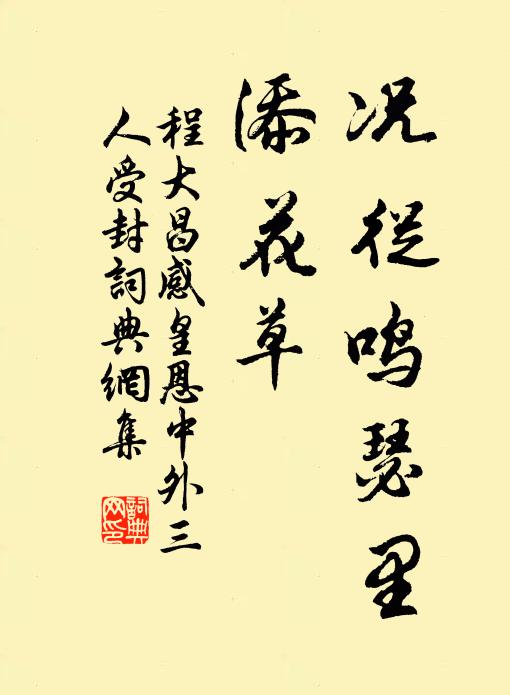 况從鸣瑟里
添花草
程大昌感皇恩中外三
人受封詞典網集
詞典
网印